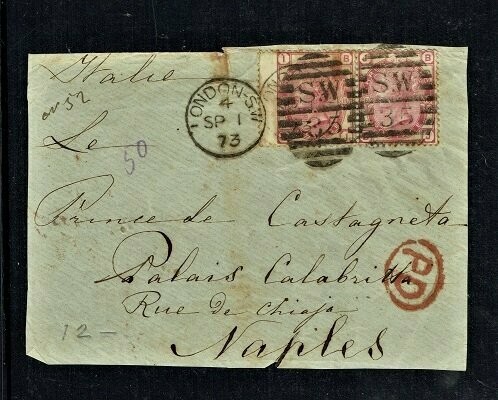 Italie
LONDON-S.W
4
SP 1
73
I B
B
J
SW
35
SW
35
50
Le
Prince de Castagneta
Palais Calabritta
PD
Rue de Chiaja
12 -
Naples